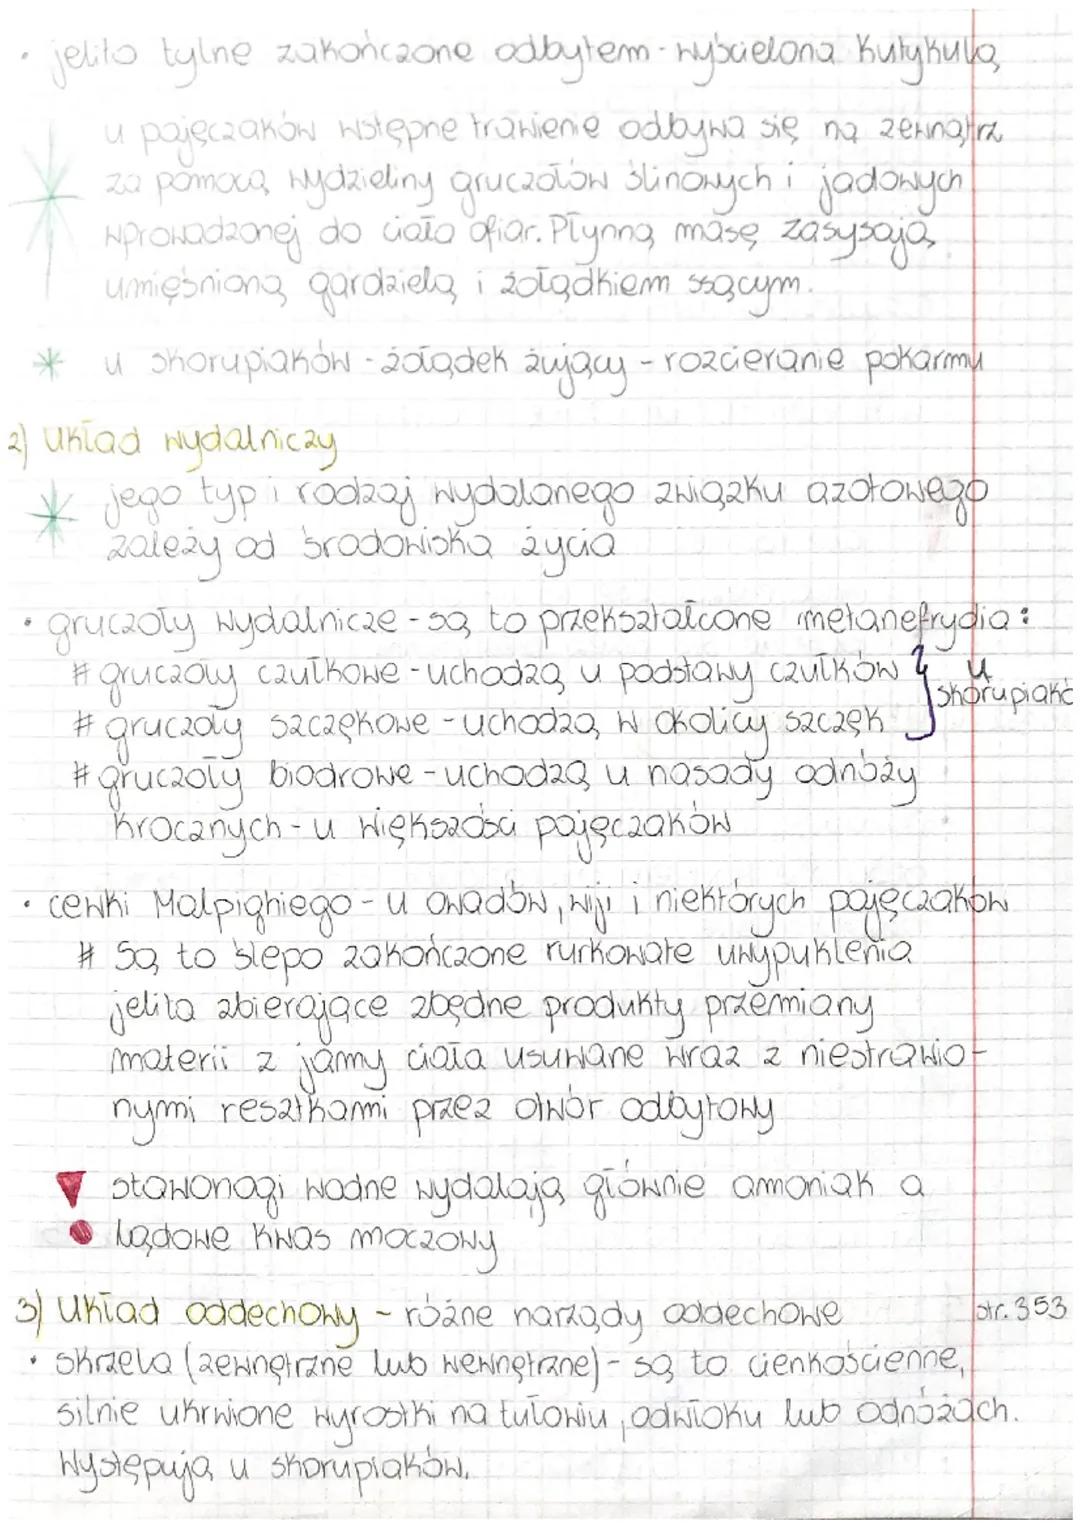 • jelito tylne zakończone odbytem - wyścielona kutykulą
u pajęczaków wstępne trawienie odbywa się na zewnątrz
za pomocą wydzieliny gruczołów ślinowych i jadowych
wprowadzonej do ciała ofiar. Płynną masę zasysają
umięśnioną gardzielą i żołądkiem ssącym.
* u skorupiaków - żołądek żujący - rozcieranie pokarmu
2) Układ wydalniczy
* jego typ i rodzaj wydalanego związku azotowego
zależy od środowiska życia
• gruczoły wydalnicze - są to przekształcone metanefrydia:
# gruczoły czułkowe - uchodzą u podstawy czułków } u
# gruczoły szczękowe - uchodzą w okolicy szczęk skorupiakó
# gruczoły biodrowe - uchodzą u nasady odnóży
krocznych - u większości pajęczaków
• cewki Malpighiego - u owadów, wiji i niektórych pajęczaków
# Są to ślepo zakończone rurkowate uwypuklenia
jelita zbierające zbędne produkty przemiany
materii z jamy ciała usuwane wraz z niestrawio-
nymi resztkami przez otwór odbytowy
! stawonogi wodne wydalają głównie amoniak a
lądowe kwas moczowy
3) Układ oddechowy - różne narządy oddechowe str. 353
• skrzela (zewnętrzne lub wewnętrzne) - są to cienkościenne,
silnie ukrwione wyrostki na tułowiu, odwłoku lub odnóżach.
Występują u skorupiaków.